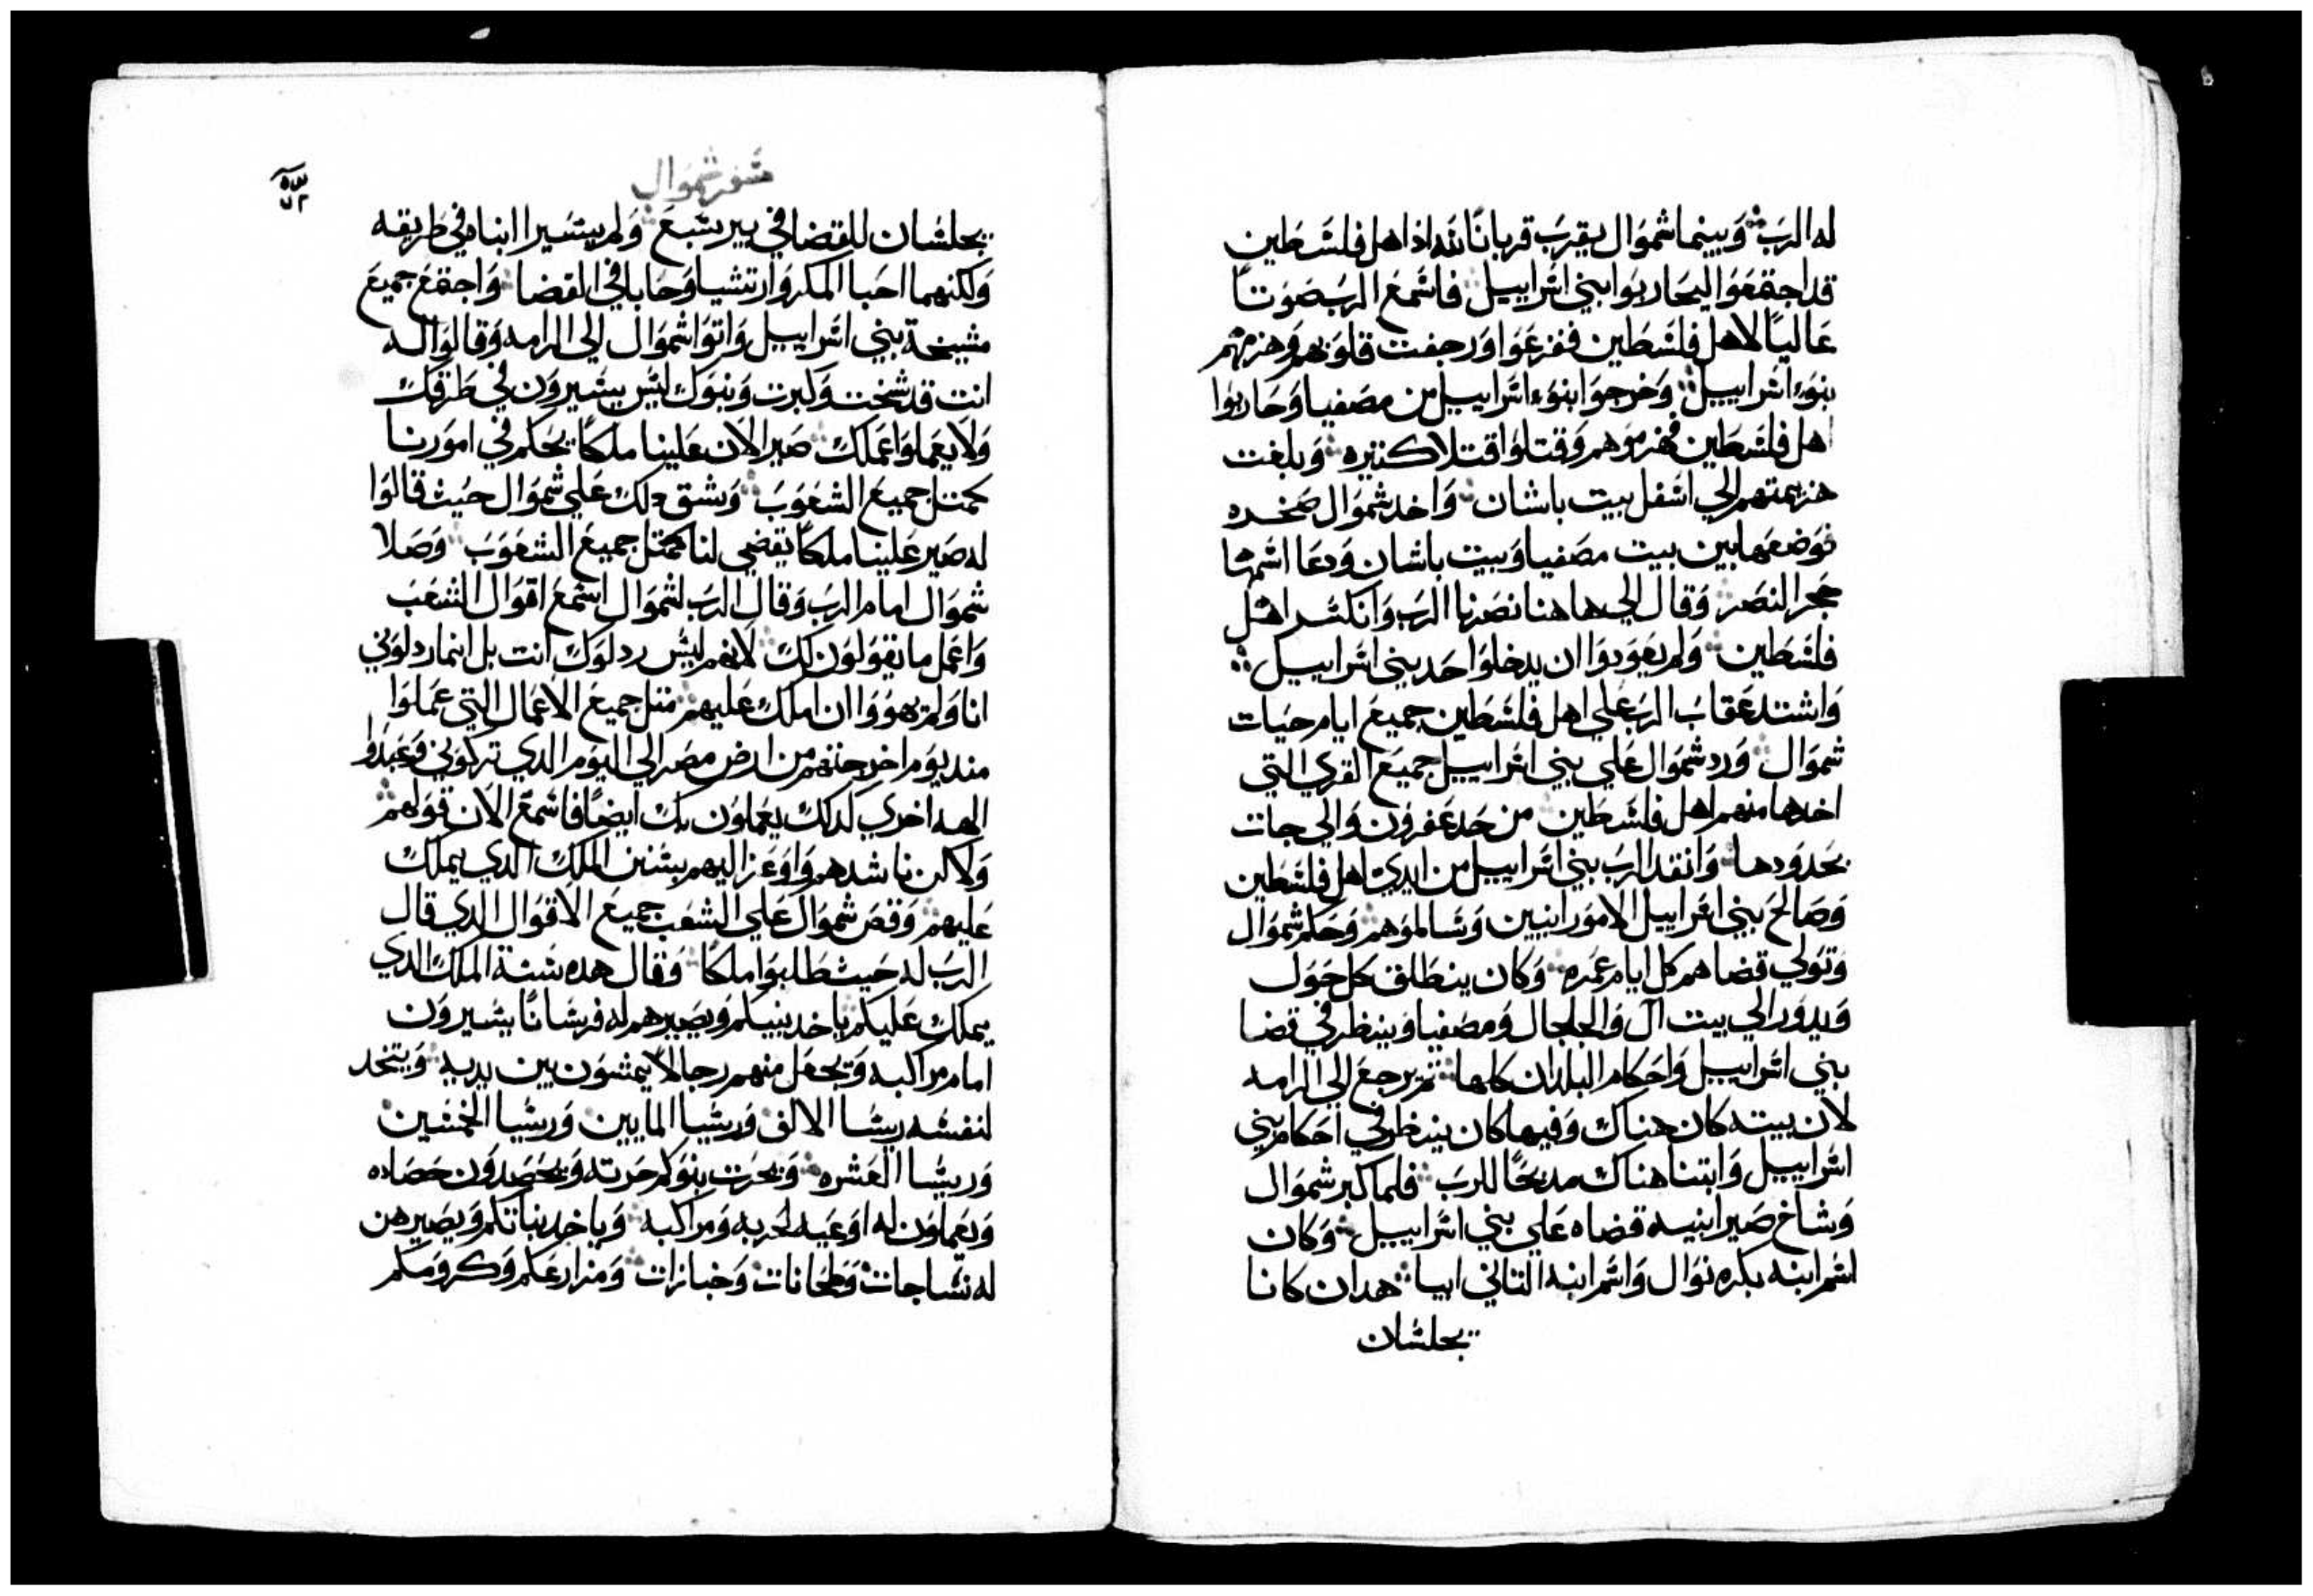 له الرب وبينما شموال يقرب قربانا لله اذا اهل فلسطين
قد اجتمعوا ليحاربوا بني اسراييل فاسمع الرب صوتا
عاليا لاهل فلسطين ففزعوا ورجفت قلوبهم وهزمهم
بنو اسراييل وخرجوا بنوء اسراييل من مصفيا وحاربوا
اهل فلسطين فهزموهم وقتلوا قتلا كثيره وبلغت
هزيمتهم الي اسفل بيت باشان واخد شموال صخره
فوضعها بين بيت مصفيا وبيت باشان ودعا اسمها
حجر النصر وقال الي هاهنا نصرنا الرب وانكسر اهل
فلسطين ولم يعودوا ان يدخلوا حد بني اسراييل
واشتد عقاب الرب علي اهل فلسطين جميع ايام حيات
شموال ورد شموال علي بني اسراييل جميع القري التي
اخدها منهم اهل فلسطين من حد عفرون والي جات
بحدودها وانقد الرب بني اسراييل من ايدي اهل فلسطين
وصالح بني اسراييل الامورانيين وسالموهم وحكم شموال
وتولي قضاهم كل ايام عمره وكان ينطلق كل حول
ويدور الي بيت آل والجلجال ومصفيا وينظر في قضا
بني اسراييل واحكام البلدان كلها تم يرجع الي الرامه
لان بيته كان هناك وفيها كان ينظر في احكام بني
اسراييل وابتنا هناك مدبحا للرب فلما كبر شموال
وشاخ صير ابنيه قضاه علي بني اسراييل وكان
اسم ابنه بكره نوال واسم ابنه التاني ابيا هدان كانا
يجلسان
سفر شموال
يجلسان للقضا في بير سبع ولم يسيرا ابناه في طريقه
ولكنهما احبا المكر وارتشيا وحابا في القضا واجتمع جميع
مشيخة بني اسراييل واتوا شموال الي الرامه وقالوا له
انت قد شخت وكبرت وبنوك ليس يسيرون في طرقك
ولا يعملوا عملك صير الان علينا ملكا يحكم في امورنا
كمتل جميع الشعوب وشق دلك علي شموال حيث قالوا
له صير علينا ملكا يقضي لنا كمتل جميع الشعوب وصلا
شموال امام الرب وقال الرب لشموال اسمع اقوال الشعب
واعمل ما يقولون لك لانهم ليس ردلوك انت بل انما ردلوني
انا ولم يهووا ان املك عليهم متل جميع الاعمال التي عملوا
مند يوم اخرجتهم من ارض مصر الي اليوم الدي تركوني وعبدوا
الهه اخري كدلك يعملون بك ايضا فاسمع الان قولهم
ولاكن ناشدهم واوعز اليهم بسنن الملك الدي يملك
عليهم وقص شموال علي الشعب جميع الاقوال الدي قال
الرب له حيث طلبوا ملكا وقال هده سنة الملك الدي
يملك عليكم ياخد بنيكم ويصيرهم له فرسانا يسيرون
امام مراكبه ويجعل منهم رجالا يمشون بين يديه ويتخد
لنفسه ريسا الالاف وريسا المايين وريسا الخمسين
وريسا العشره ويحرت بنوكم حرته ويحصدون حصاده
ويعملون له اوعيه لحربه ومراكبه وياخد بناتكم ويصيرهن
له نساجات وطحانات وخبازات ومزارعكم وكرومكم